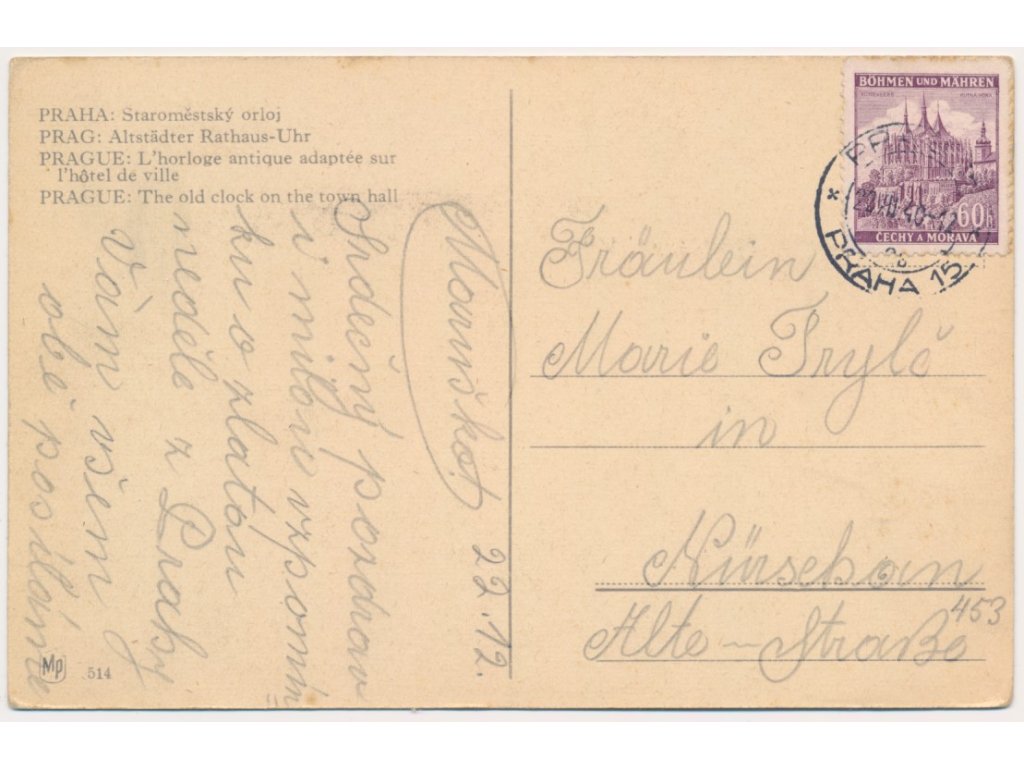 PRAHA: Staroměstský orloj
PRAG: Altstädter Rathaus-Uhr
PRAGUE: L'horloge antique adaptée sur
l'hôtel de ville
PRAGUE: The old clock on the town hall
BÖHMEN UND MÄHREN
60h
ČECHY A MORAVA
PRAHA 15
Fräulein
Marie Trylč
in
Nürschan
Alte-Straße 453
22.12.
Mařenko!
Srdečný pozdrav
i milou vzpomín
ku o zlatou
neděle z Prahy
Vám všem
obě posíláme
Mp
514